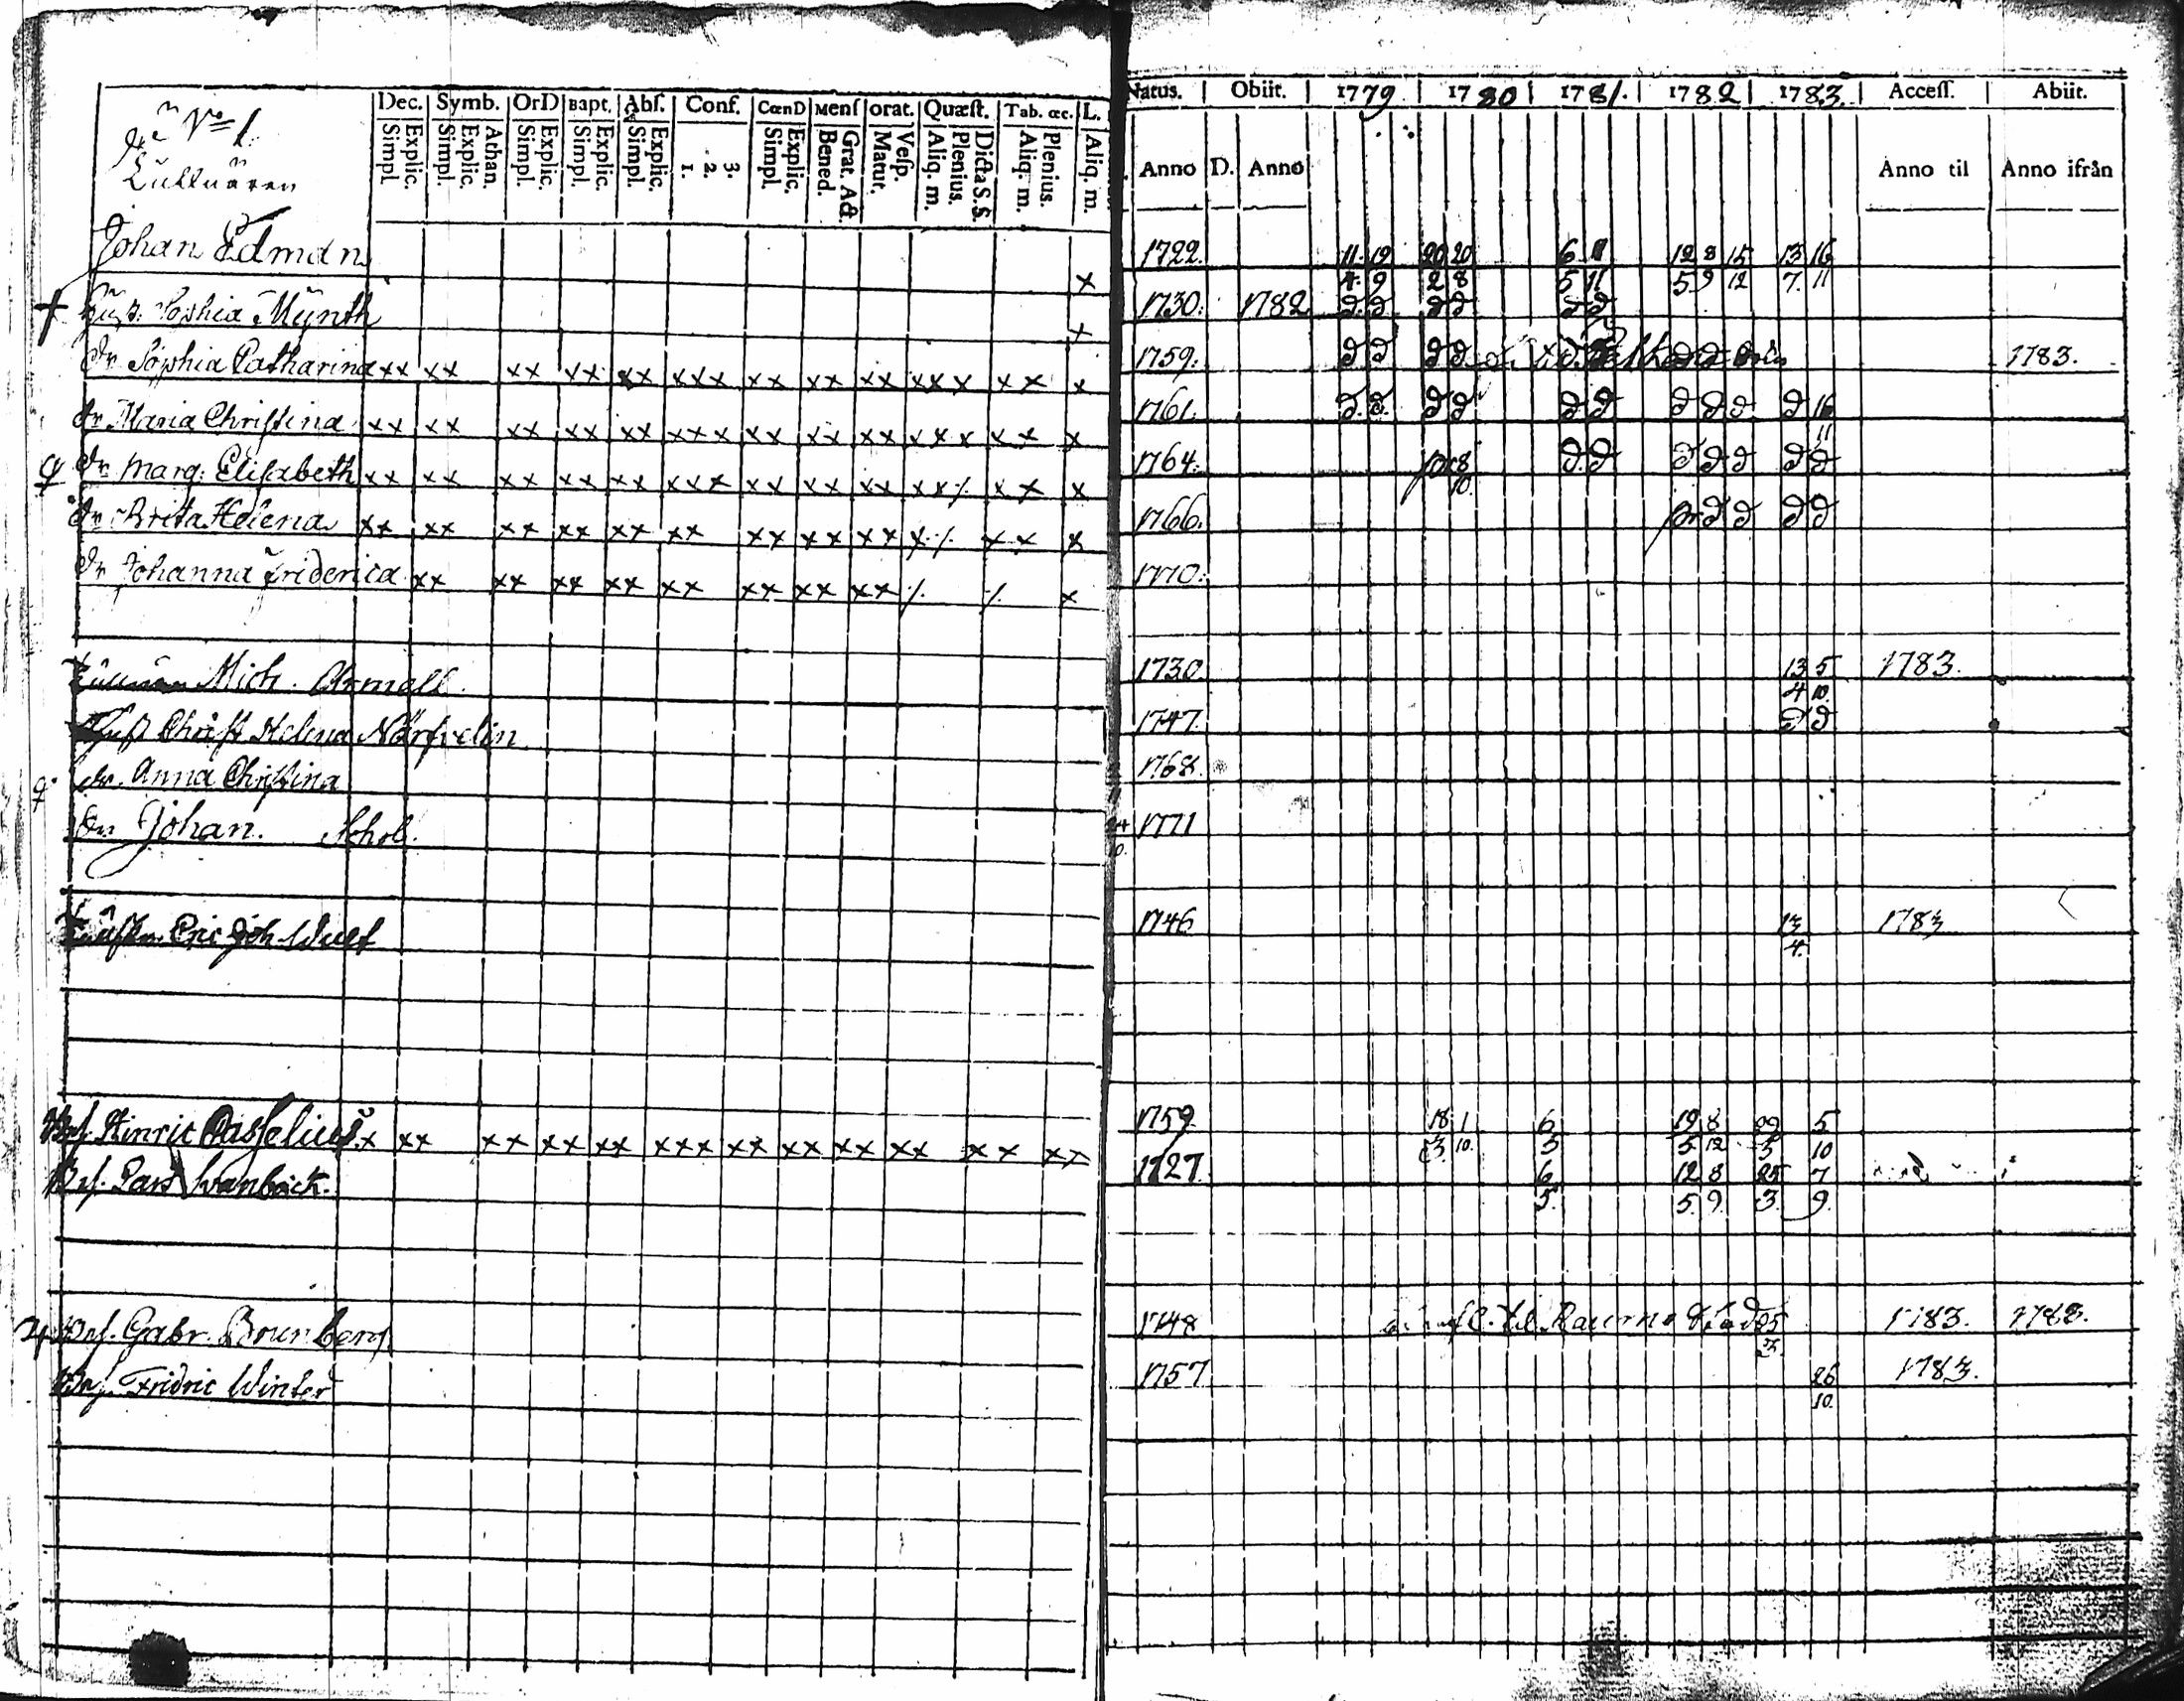 Dec. Symb. OrD Bapt. Abſ. Conf. CœnD Menſ orat. Quæſt. Tab. œc. L.
Explic. Simpl. Athan. Explic. Simpl. Explic. Simpl. Explic. Simpl. Explic. Simpl. 3. 2. 1. Explic. Simpl. Grat. Act. Bened. Veſp. Matut. Dicta S. S. Plenius. Aliq. m. Plenius. Aliq. m. Aliq. m.
Natus. Obiit. 1779. 1780 1781. 1782 1783. Acceſſ. Abiit.
Anno D. Anno Anno til Anno ifrån
No 1.
Johan Edman 1722. 11. 19 20 20 6 11 12 8 15 13 16
x 4. 9 2 8 5 11 5 9 12 7. 11
† Hust. Sophia Mÿnth x 1730. 1782 d. d. d d d d
dr Sophia Catharina xx xx xx xx xx xxx xx xx xx xxx xx x 1759. d d d d 1783.
dr Maria Chriſtina xx xx xx xx xx xxx xx xx xx xxx xx x 1761. d. d. d d d d d d d d 16
11
dr Marg: Eliſabeth xx xx xx xx xx xxx xx xx xx xx⁒ xx x 1764. pr 8 d. d d d d d d
10.
dr Brita Helena xx xx xx xx xx xx xx xx xx x⁒ xx x 1766. pr d d d d
dr Johanna Friderica xx xx xx xx xx xx xx xx ⁒ ⁒ x 1770.
Mich. Armell 1730. 13 5 1783.
4 10.
Hust Chriſt Helena Nörvelin 1747. d d
dr. Anna Chriſtina 1768.
Johan. Schol. 1771
Eric Joh. Wulf 1746 13 1783
4.
Beſ. Hinric Caſſelius xx xx xx xx xx xxx xx xx xx xx xx xx 1759. 18 1 6 19 8 29 5
3. 10. 5 5 12 3 10
Beſ. Lars Svanbäck. 1727. 6 12 8 25 7
5. 5. 9. 3. 9.
Beſ. Gabr. Brunberg 1748 til Raumo Stad 25 1783. 1783.
3.
Beſ. Fridric Winter 1757 26 1783.
10.